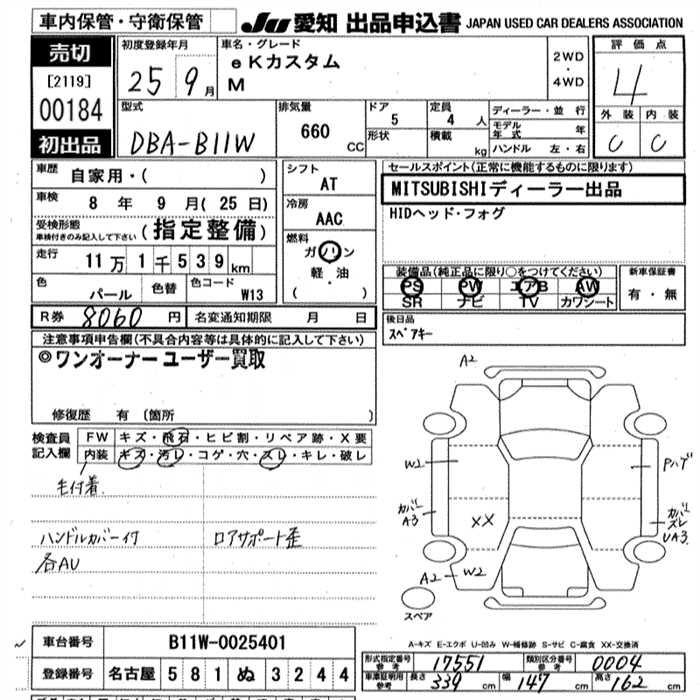 車内保管・守衛保管
JU 愛知 出品申込書 JAPAN USED CAR DEALERS ASSOCIATION
売切
[2119]
00184
初出品
初度登録年月
25 9月
車名・グレード
eKカスタム
M
2WD
・
4WD
評価点
4
外装 内装
C C
型式
DBA-B11W
排気量
660 CC
ドア
5
形状
定員
4 人
積載
kg
ディーラー・並行
モデル年式 年
ハンドル 左・右
車歴
自家用・( )
車検
8 年 9 月 (25 日)
受検形態
車検付きのみ記入して下さい
(指定整備)
走行
11万 1千 539 km
色
パール
色替
色コード
W13
シフト
AT
冷房
AAC
燃料
ガソリン
軽・油
( )
セールスポイント(正常に機能するものに限ります)
MITSUBISHIディーラー出品
HIDヘッド・フォグ
装備品(純正品に限り○をつけてください)
PS PW エアB AW
SR ナビ TV カワシート
新車保証書
有・無
R券 8060 円
名変通知期限 月 日
後日品
スペアキー
注意事項申告欄(不具合内容等は具体的に記入して下さい)
◎ワンオーナー ユーザー買取
修復歴 有 (箇所 )
検査員
記入欄
FW キズ・飛石・ヒビ割・リペア跡・X要
内装 キズ・汚レ・コゲ・穴・スレ・キレ・破レ
毛付着
ハンドルカバー付 ロアサポート歪
各AU
A2
W2
Pハゲ
カバー
A3
XX
カバー
スレ
UA3
A2
W2
スペア
A-キズ E-エクボ U-凹み W-補修跡 S-サビ C-腐食 XX-交換済
車台番号 B11W-0025401
登録番号 名古屋 581 ぬ 3244
形式指定番号
参考
17551
類別区分番号
参考
0004
車庫証明用
参考
長さ 339 cm 幅 147 cm 高さ 162 cm